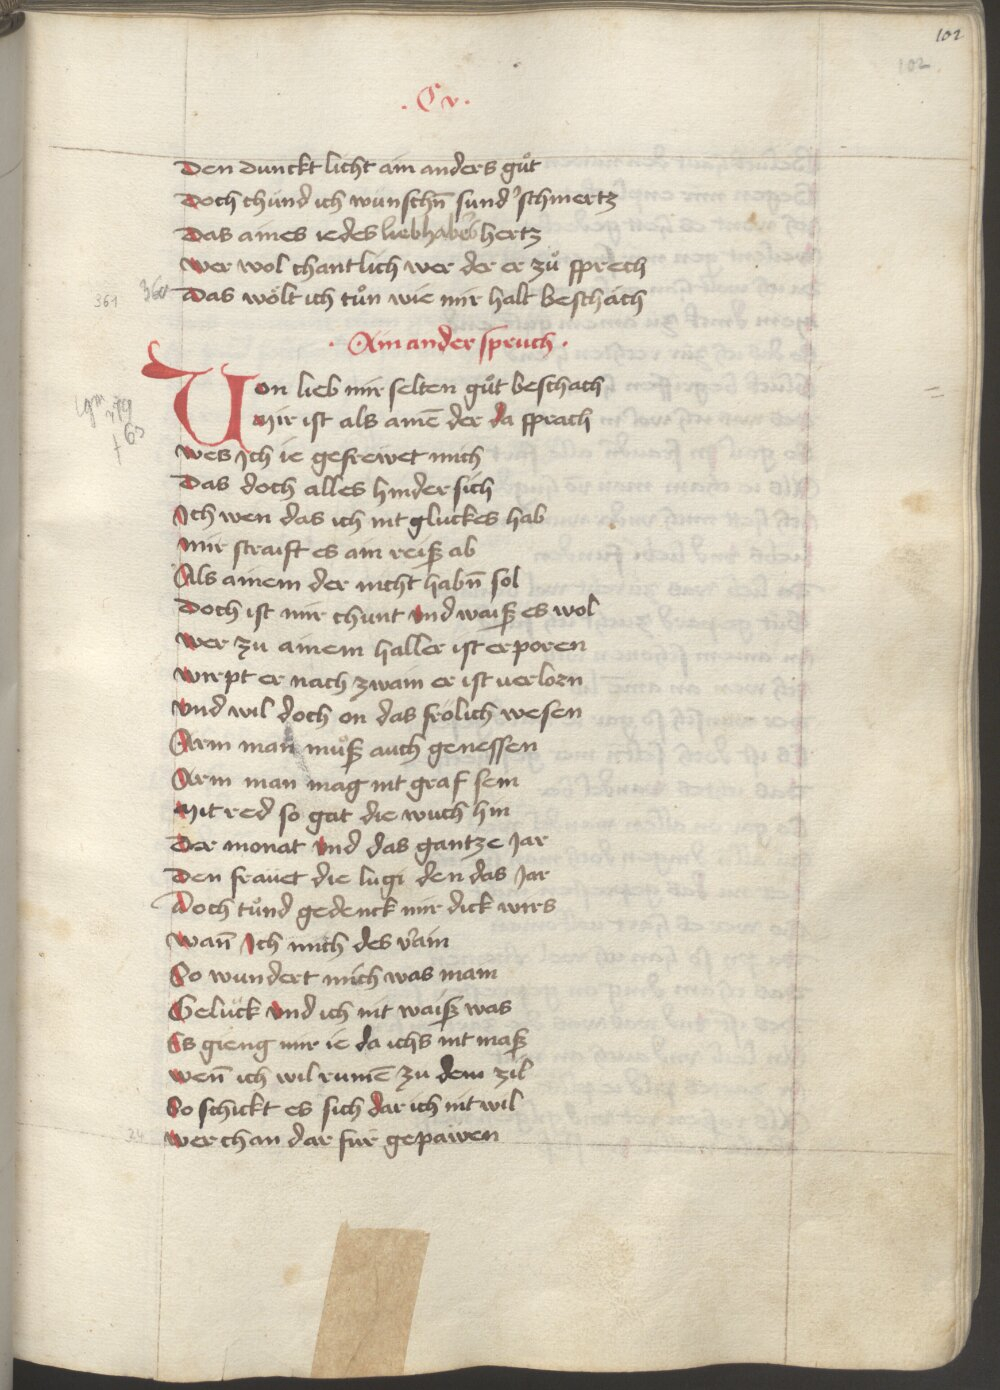 102
102
· Cv ·
Den dunckt licht ain anders gůt
Doch chünd ich wünschñ sunder schmertz
Das aines iedes liebhabers hertz
Wer wol chantlich wer der er zů sprech
361 360 Das wölt ich tůn wie mir halt beschäch
· Ain ander spruch ·
Von lieb mir selten gůt beschach
Mir ist als ainē der da sprach
Wes Ich ie gefrewet mich
Das doch alles hindersich
Ich wen das ich nit gluckes hab
Mir straift es ain reiß ab
Als ainem der nicht habñ sol
Doch ist mir chunt vnd waiß es wol
Wer zu ainem haller ist erporen
Wirpt er nach zwain er ist uerlorn
Vnd wil doch on das frölich wesen
Arm man můß auch genessen
Arm man mag nit graf sein
Mit red so gat die wuch hin
Der monat vnd das gantze Jar
Den fraüet die lugi den das Jar
Doch tůnd gedenck mir dick wirs
Wañ Ich mich des
So wundert mich was main
Gelück vnd ich nit waiß was
Es gieng mir ie da ichs nit maß
Weñ ich wil rumē zu dem zil
So schickt es sich dar ich nit wil
24 Wer chan dar für gepawen